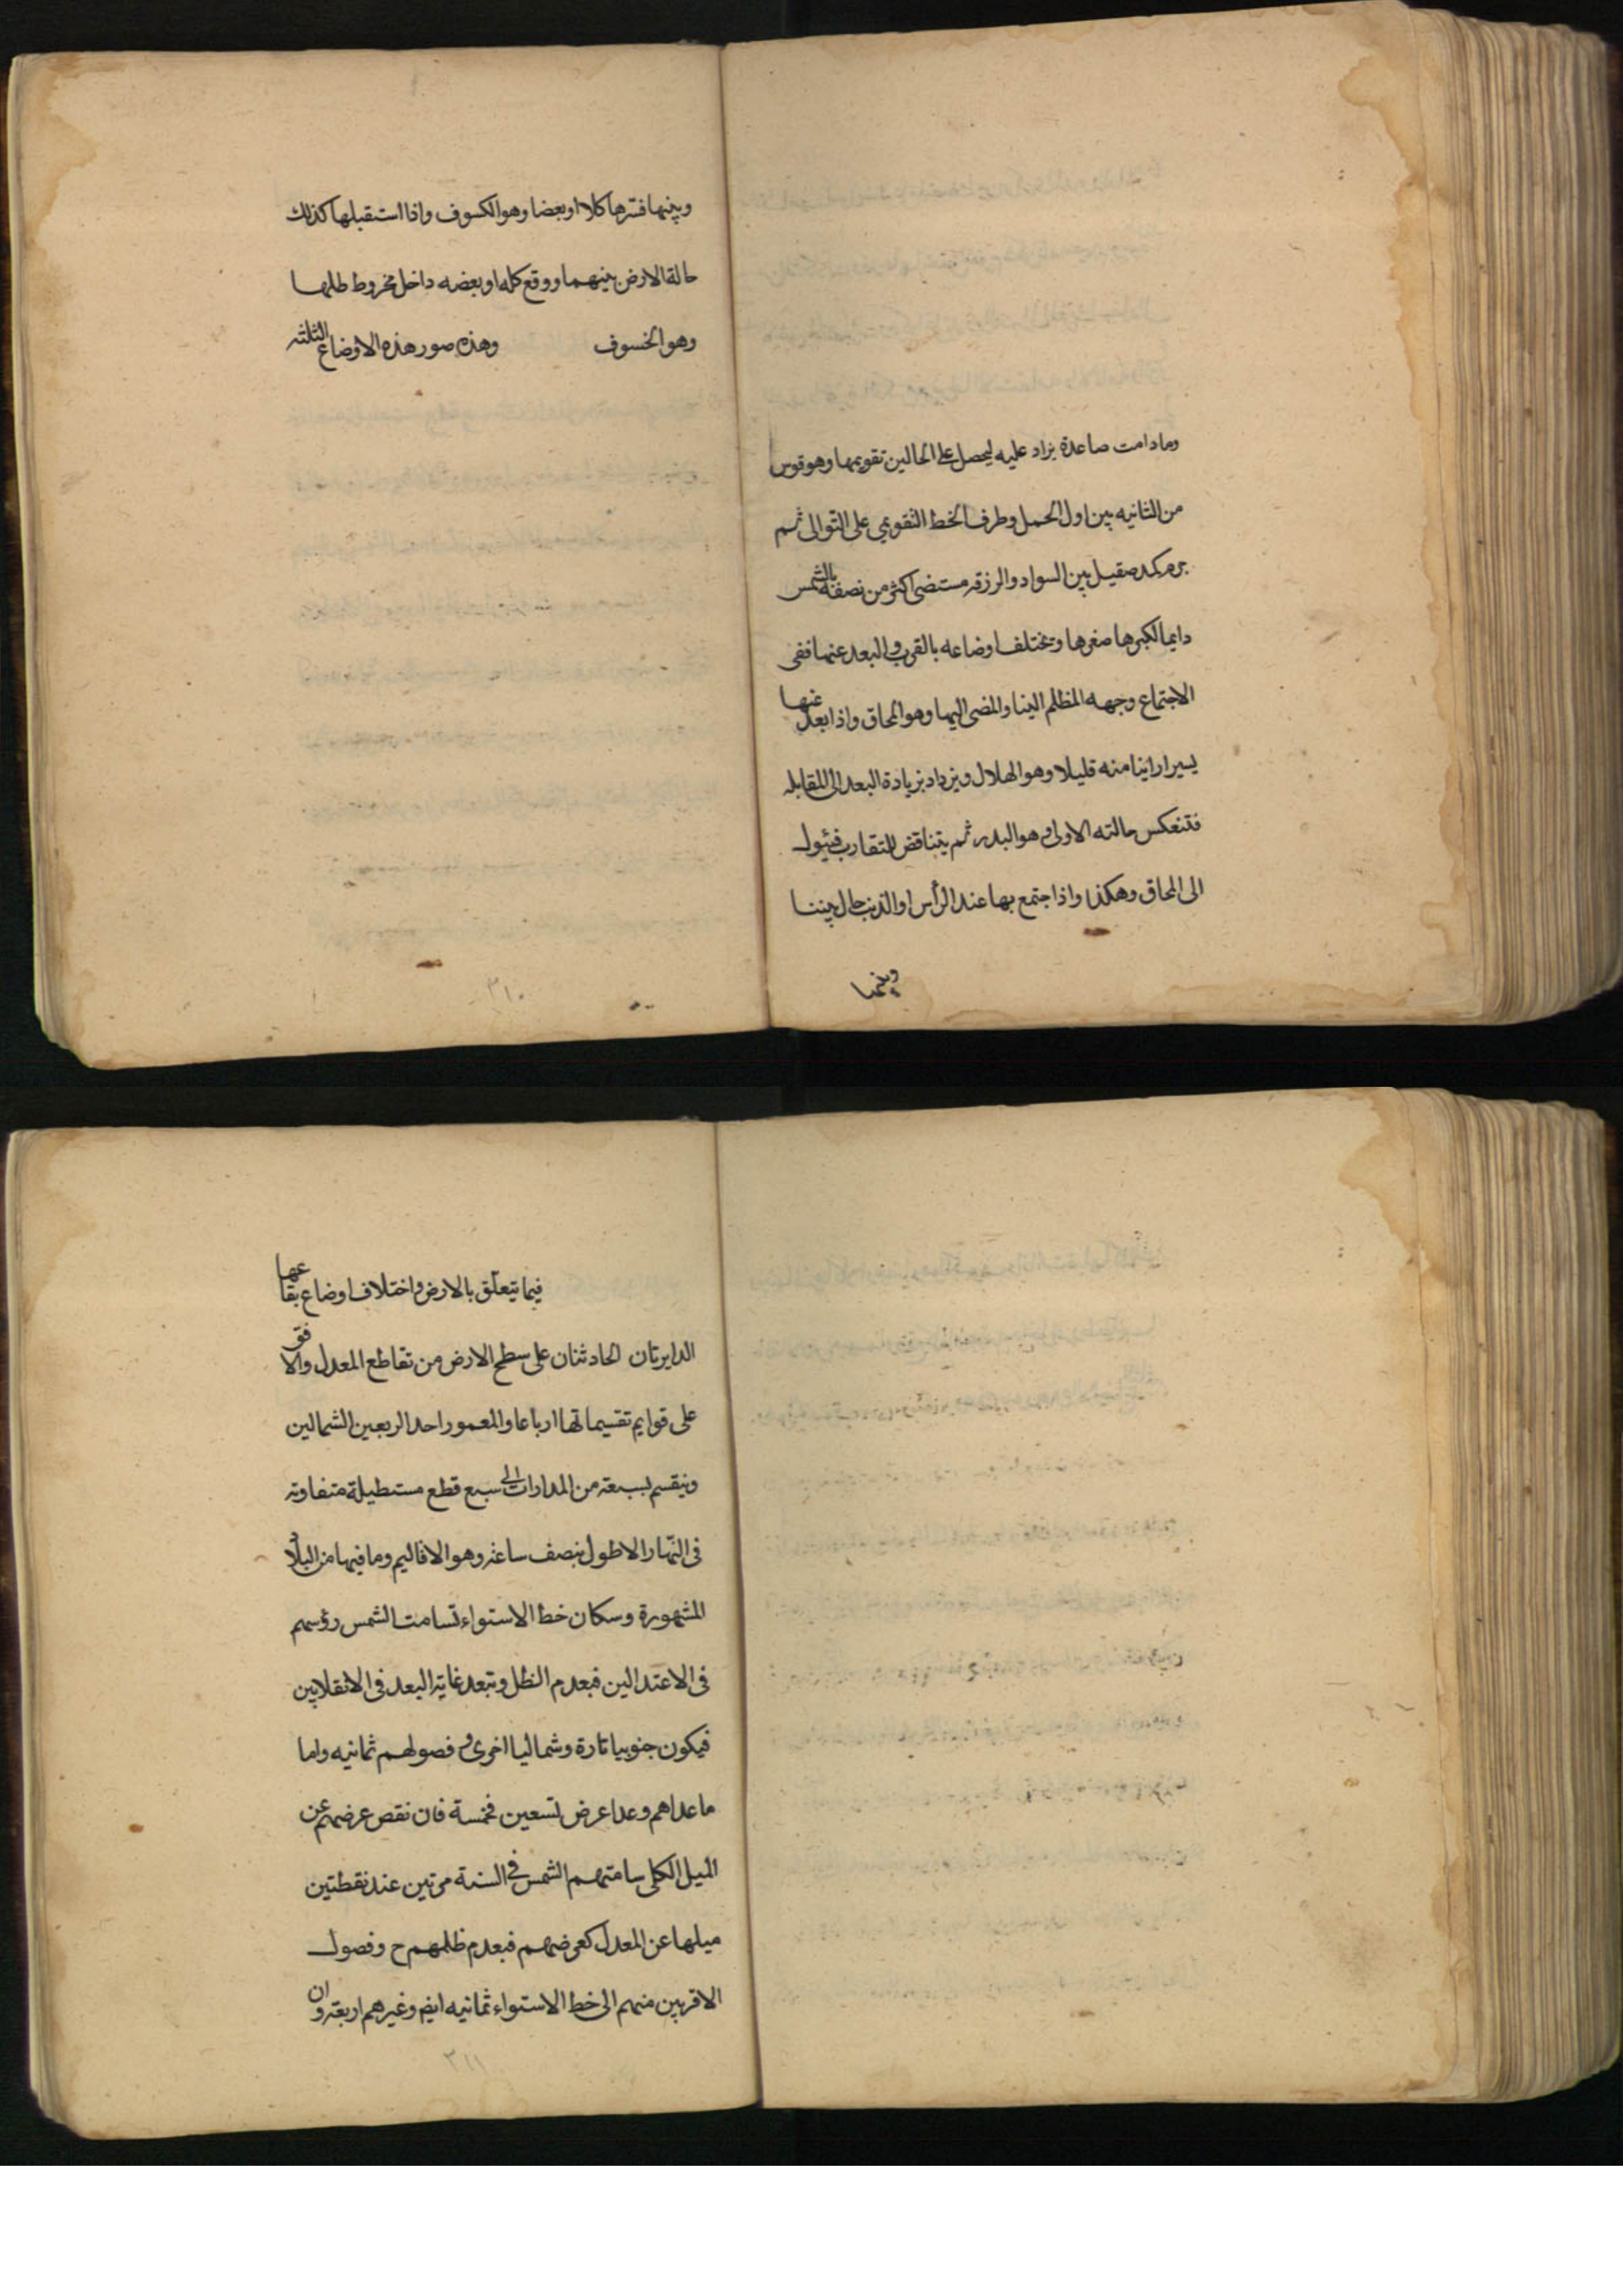 ومادامت صاعدة يزاد عليه ليحصل على الحالين تقويمها وهو قوس
من الثانيه بين اول الحمل وطرف الخط التقويمي على التوالى ثم
جرم كمد صقيل بين السواد والزرقه مستضى اكثر من نصفه بالشمس
دايما لكبرها صغرها وتختلف اوضاعه بالقرب والبعد عنها ففى
الاجتماع وجهه المظلم الينا والمضى اليها وهو المحاق واذا بعد عنها
يسيرا راينا منه قليلا وهو الهلال ويزداد بزيادة البعد الى المقابله
فتنعكس حالته الاولى وهو البدر ثم يتناقض للتقارب فيئول
الى المحاق وهكذا واذا جتمع بها عند الرأس او الذنب حال بيننا
وبينها
وبينها فسترها كلا او بعضا وهو الكسوف واذا استقبلها كذلك
حالة الارض بينهما ووقع كله او بعضه داخل مخروط ظلها
وهو الخسوف وهذه صور هذه الاوضاع الثلثة
٣١٠
فيما يتعلق بالارض واختلاف اوضاع بقاعها
الدايرتان الحادثتان على سطح الارض من تقاطع المعدل والافق
على قوايم تقسيماتها ارباعا والمعمور احد الربعين الشمالين
وينقسم بسبعة من المدارات الى سبع قطع مستطيلة متفاوته
فى النهار الاطول بنصف ساعة وهو الاقاليم وما فيها من البلاد
المشهورة وسكان خط الاستواء تسامت الشمس رؤسهم
فى الاعتدالين فيعدم الظل وتبعد غاية البعد فى الانقلابين
فيكون جنوبيا تارة وشماليا اخرى وفصولهم ثمانيه واما
ما عداهم وعدا عرض تسعين فخمسة فان نقص عرضهم عن
الميل الكلى سامتهم الشمس في السنة مرتين عند نقطتين
ميلها عن المعدل كعرضهم فيعدم ظلهم ح وفصول
الاقربين منهم الى خط الاستواء ثمانيه ايضا وغيرهم اربعة وان
٣١١